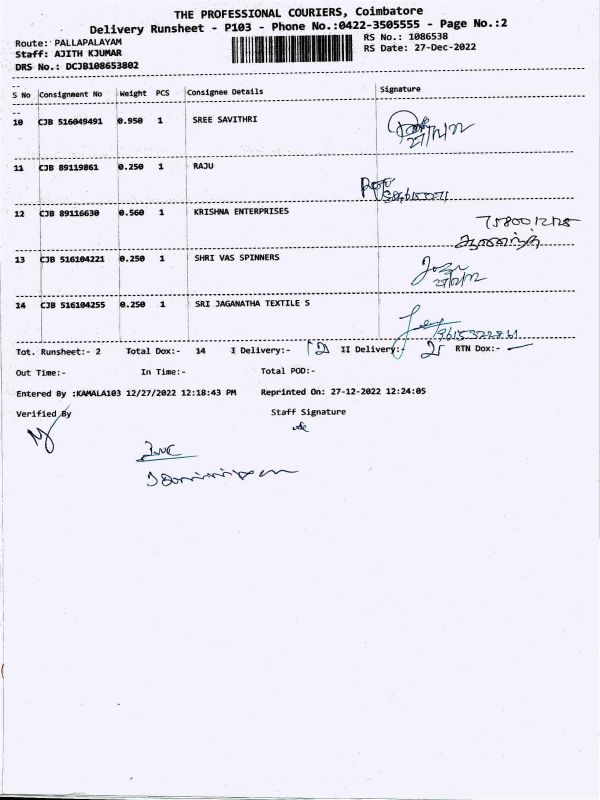 THE PROFESSIONAL COURIERS, Coimbatore
Delivery Runsheet - P103 - Phone No.:0422-3505555 - Page No.:2
Route: PALLAPALAYAM
RS No.: 1086538
Staff: AJITH KJUMAR
RS Date: 27-Dec-2022
DRS No.: DCJB108653802
S No Consignment No Weight PCS Consignee Details Signature
10 CJB 516049491 0.950 1 SREE SAVITHRI
27/12/22
11 CJB 89119861 0.250 1 RAJU
Raju
12 CJB 89116630 0.560 1 KRISHNA ENTERPRISES
13 CJB 516104221 0.250 1 SHRI VAS SPINNERS
27/12/22
14 CJB 516104255 0.250 1 SRI JAGANATHA TEXTILE S
Tot. Runsheet:- 2 Total Dox:- 14 I Delivery:- 12 II Delivery:- 2 RTN Dox:- —
Out Time:- In Time:- Total POD:-
Entered By :KAMALA103 12/27/2022 12:18:43 PM Reprinted On: 27-12-2022 12:24:05
Verified By Staff Signature